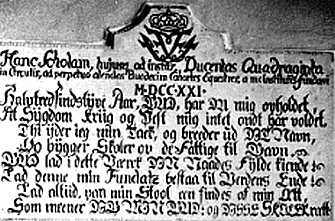 Hanc Scholam, hujusq; ad instar, Ducentas Quadraginta
in Circulis, ad perpetuo alendas Cohortes Equestres, a me Institutis, fundavi
M·DCC·XXI·
Halvtredsindstyve Aar, GUD, har DU mig opholdet,
At Sygdom Kriig og Pest mig intet ondt har voldet
Thi yder jeg min Tack, og breeder ud DIT Navn,
Og bygger Skoler op de Fattige til Gavn.
GUD lad i dette Værck DIN Naades Fylde kiende
Lad denne min Fundatz bestaa til Verdens Ende
Lad altiid paa min Stool een findes af min Ætt,
Som meener DIG MIN GUD, og Disse Skoler rett